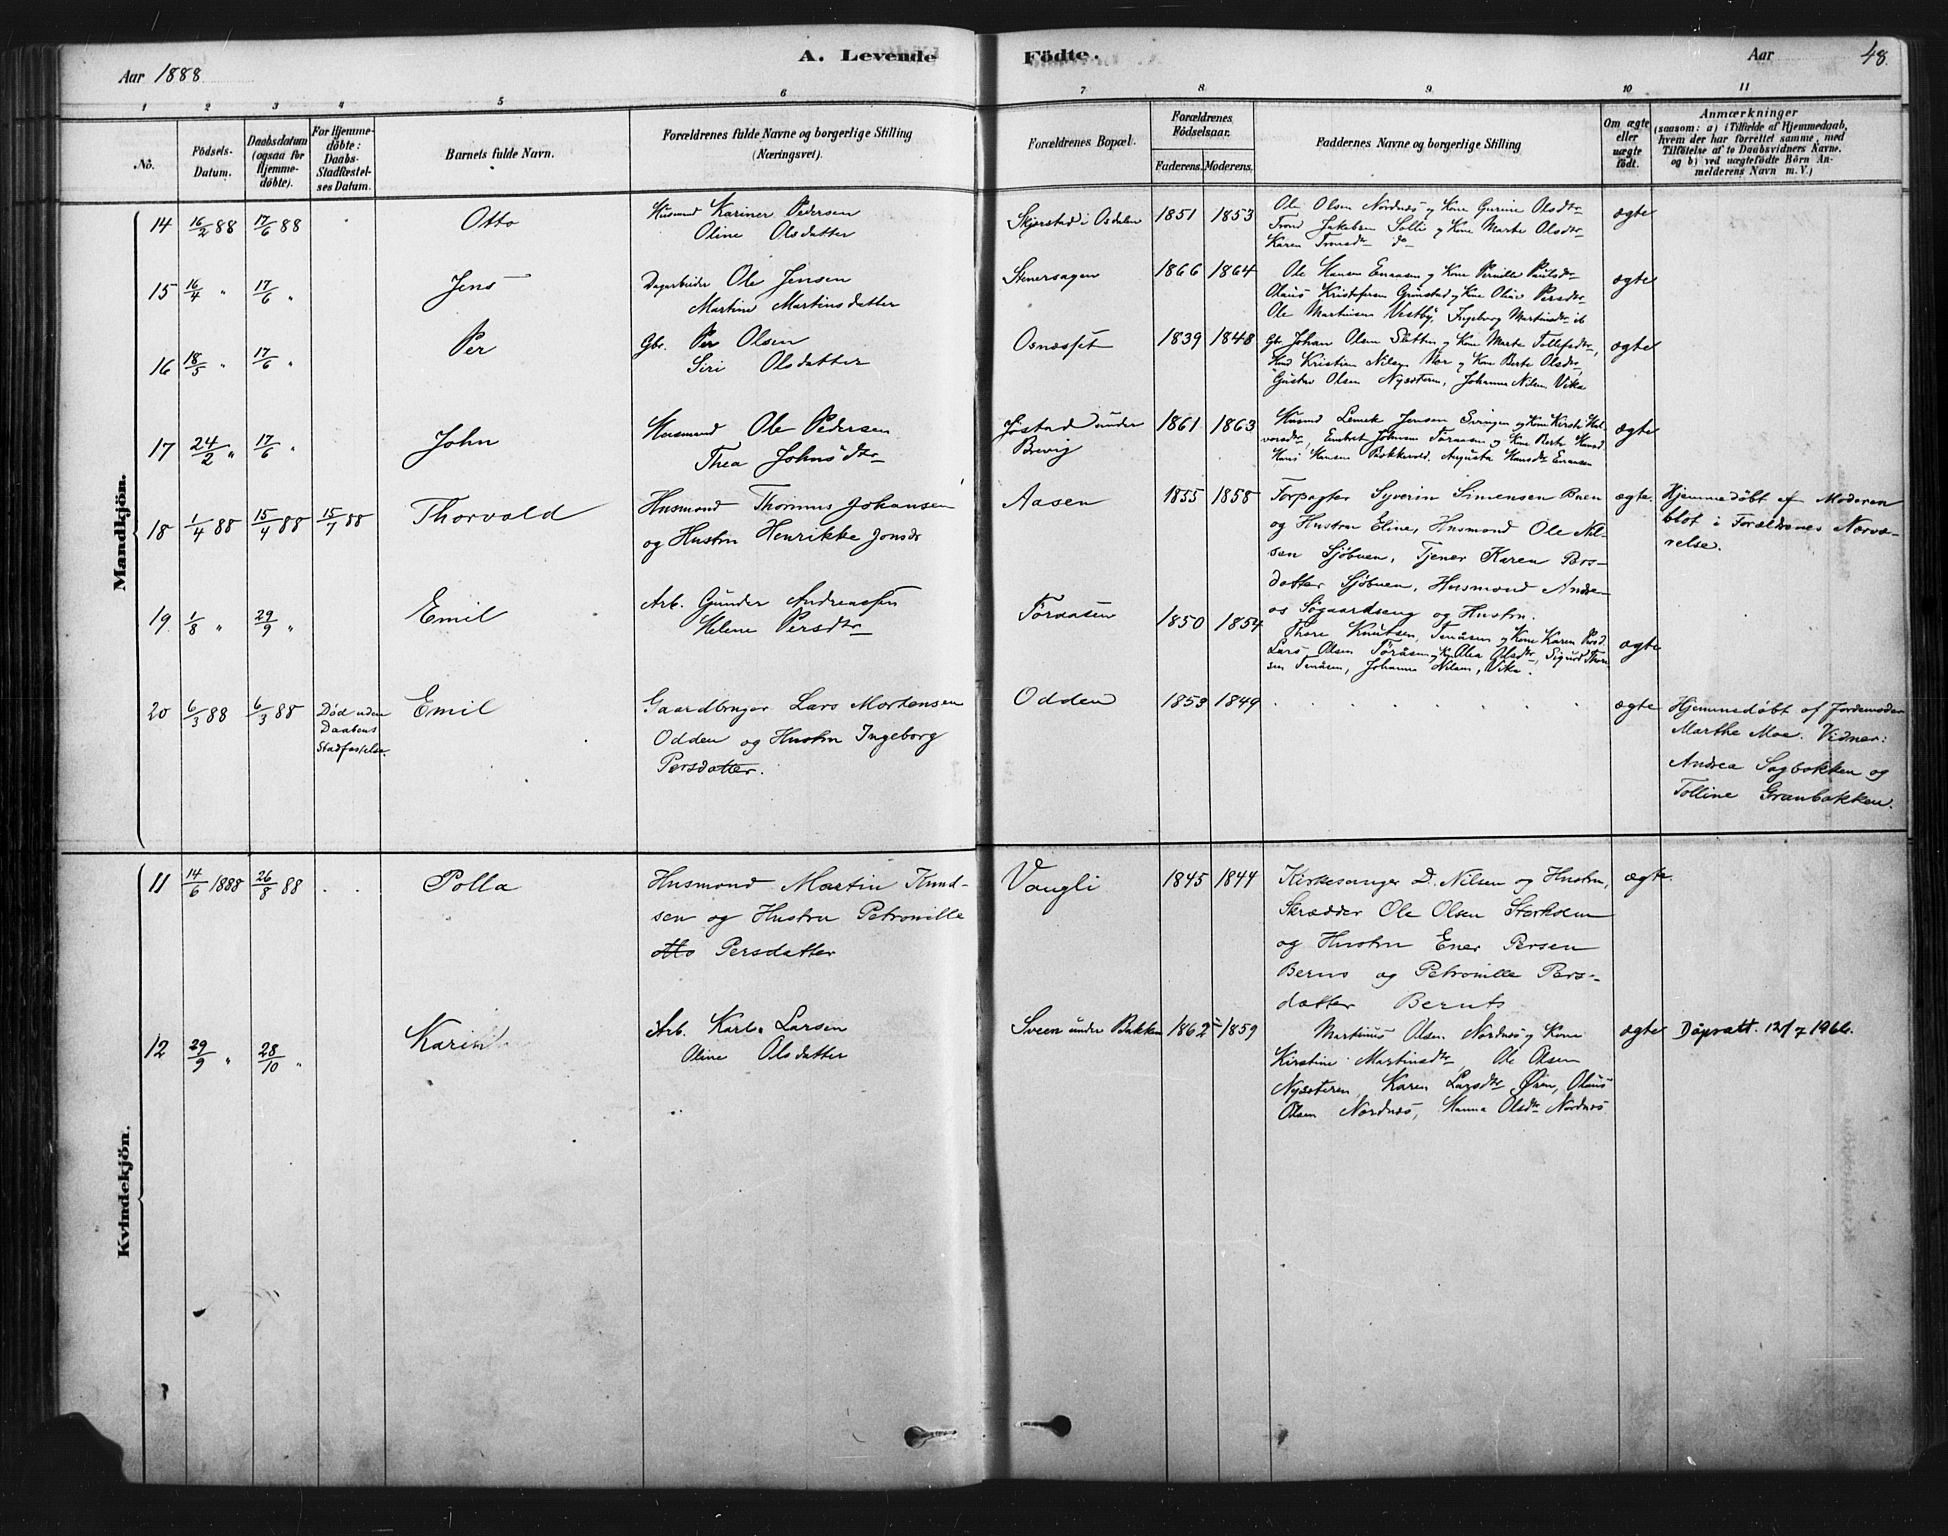 A. Levende Födte.
Aar 1888
Aar 48.
1 2 3 4 5 6 7 8 9 10 11
No.
Födsels-Datum.
Daabsdatum (ogsaa for Hjemmedöbte).
For Hjemmedöbte: Daabs-Stadfæstelses Datum.
Barnets fulde Navn.
Forældrenes fulde Navne og borgerlige Stilling (Næringsvei).
Forældrenes Bopæl.
Forældrenes Födselsaar.
Faderens. Moderens.
Faddernes Navne og borgerlige Stilling
Om ægte eller uægte födt.
Anmærkninger
(saasom: a) i Tilfælde af Hjemmedaab, hvem der har forrettet samme, med Tilföielse af to Daabsvidners Navne, og b) ved uægtefödte Börn Anmelderens Navn m. V.)
Mandkjön.
14 16/2 88 17/6 88 Otto
Husmd Kariner Pedersen
Oline Olsdatter
Skjerstad i Osdalen 1851 1853
Ole Olsen Nordnæs og Kone Gurine Olsdtr
Trond Jakobsen Solli og Kone Marte Olsdtr
Karen Tronsdtr do
ægte
15 16/4 " 17/6 " Jens
Dagarbeider Ole Jensen
Martine Martinsdatter
Stenersagen 1866 1864
Ole Hansen Enaasen og Kone Pernille Paulsdtr
Olaus Kristofersen Grönstad og Kone Oline Persdtr
Ole Martinsen Vestby, Ingeborg Martinsdtr ib
ægte
16 18/5 " 17/6 " Per
Gbr. Per Olsen
Siri Olsdatter
Osnesset 1839 1848
Gb. Johan Olsen Sletten og Kone Marte Tollefsdtr,
Kristian Nilsen Mor og Kone Berte Olsdtr,
Gustav Olsen Nysæteren, Johanne Nilsen Vika
ægte
17 24/2 " 17/6 " John
Husmand Ole Pedersen
Thea Johnsdtr
Jöstad under Brevig 1861 1863
Husmd Lemek Jensen Svingen og Kone Kirsti Hal-
vorsdtr, Embret Johnsen Töraasen og Kone Berte Hansd.
Hans Hansen Bækkevold, Augusta Hansdtr Enaasen
ægte
18 1/4 88 15/4 88 15/7 88 Thorvald
Husmand Thomas Johansen
og Hustru Henrikke Jonsdr
Aasen 1855 1858
Forpagter Syverin Simensen Buen
og Hustru Eline, Husmand Ole Nil-
sen Sjöbuen, Tjener Karen Pers-
datter Sjöbuen, Husmand Andre-
as Søgaardseng og Hustru.
ægte
Hjemmedøbt af Moderen
blot i Forældrenes Nærvæ-
relse.
19. 1/8 " 29/9 " Emil
Arb. Gunder Andreassen
Helene Persdtr
Töraasen 1850 1854
Thore Knutsen, Tenåsen og Kone Karen Persd.
Lars Olsen Töråsen og K. Olea Olsdtr, Sigurd Thore
sen Tenåsen, Johanna Nilsen, Vika.
ægte
20 6/3 88 6/3 88 Død uden Daabens Stadfæstelse. Emil
Gaardbruger Lars Mortensen
Odden og Hustru Ingeborg
Persdatter.
Odden 1853 1849
ægte
Hjemmedøbt af Jordemoder
Marthe Moe. Vidner:
Andrea Sagbakken og
Tolline Granbakken.
Kvindekjön.
11 14/6 1888 26/8 88 Polla
Husmand Martin Knud-
sen og Hustru Petronille
Persdatter
Vangli 1845 1844
Kirkesanger D. Nilsen og Hustru,
Skrædder Ole Olsen Storholm
og Hustru Ener Persen
Berns og Petronille Pers-
datter Bernts
ægte.
12 29/9 " 28/10 "
Arb. Karl Larsen
Oline Olsdatter
Sveen under Bakken 1862 1859
Martinus Olsen Nordnæs og Kone
Kirstine Martinsdtr Ole Olsen
Nysæteren, Karen Larsdtr Øren, Olaus
Olsen Nordnæs, Hanna Olsdtr Nordnæs
ægte
Dåpsatt. 12/7 1966.